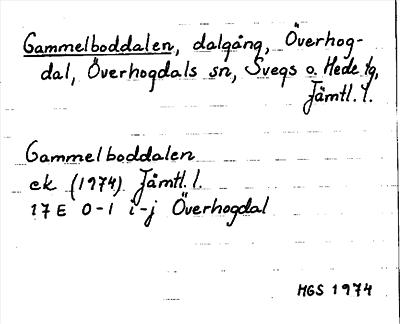 Gammelboddalen, dalgång, Överhog-
dal, Överhogdals sn, Svegs o. Hede tg,
Jämtl. l.
Gammelboddalen
ek (1974) Jämtl. l.
17E 0-1 i-j Överhogdal
MGS 1974